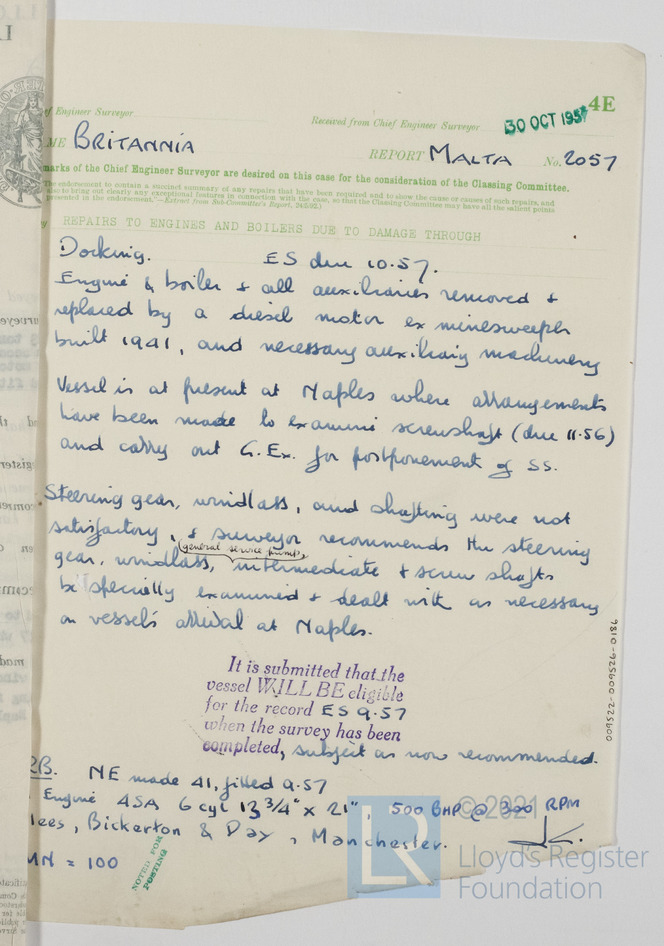 ef Engineer Surveyor
Received from Chief Engineer Surveyor
30 OCT 1957
4E
ME BRITANNIA
REPORT MALTA No. 2057
marks of the Chief Engineer Surveyor are desired on this case for the consideration of the Classing Committee.
The endorsement to contain a succinct summary of any repairs that have been required and to show the cause or causes of such repairs, and
also to bring out clearly any exceptional features in connection with the case, so that the Classing Committee may have all the salient points
presented in the endorsement."—Extract from Sub-Committee's Report, 24/5/92.)
REPAIRS TO ENGINES AND BOILERS DUE TO DAMAGE THROUGH
Docking. ES due 10.57.
Engine & boiler & all auxiliaries removed &
replaced by a diesel motor ex minesweeper
built 1941, and necessary auxiliary machinery
Vessel is at present at Naples where arrangements
have been made to examine screwshaft (due 11.56)
and carry out G.Ex. for postponement of SS.
Steering gear, windlass, and shafting were not
satisfactory, & surveyor recommends the steering
general service pump,
gear, windlass, intermediate & screw shafts
be specially examined & dealt with as necessary
on vessel's arrival at Naples.
It is submitted that the
vessel WILL BE eligible
for the record ES 9.57
when the survey has been
completed, subject as now recommended.
RB. NE made 41, fitted 9.57
Engine 4SA 6 cyl 13 3/4" x 21", 500 BHP @ 300 RPM
lees, Bickerton & Day, Manchester.
MN = 100
NOTED FOR
POSTING
009522-009526-0186
© 2021
LR
Lloyd's Register
Foundation